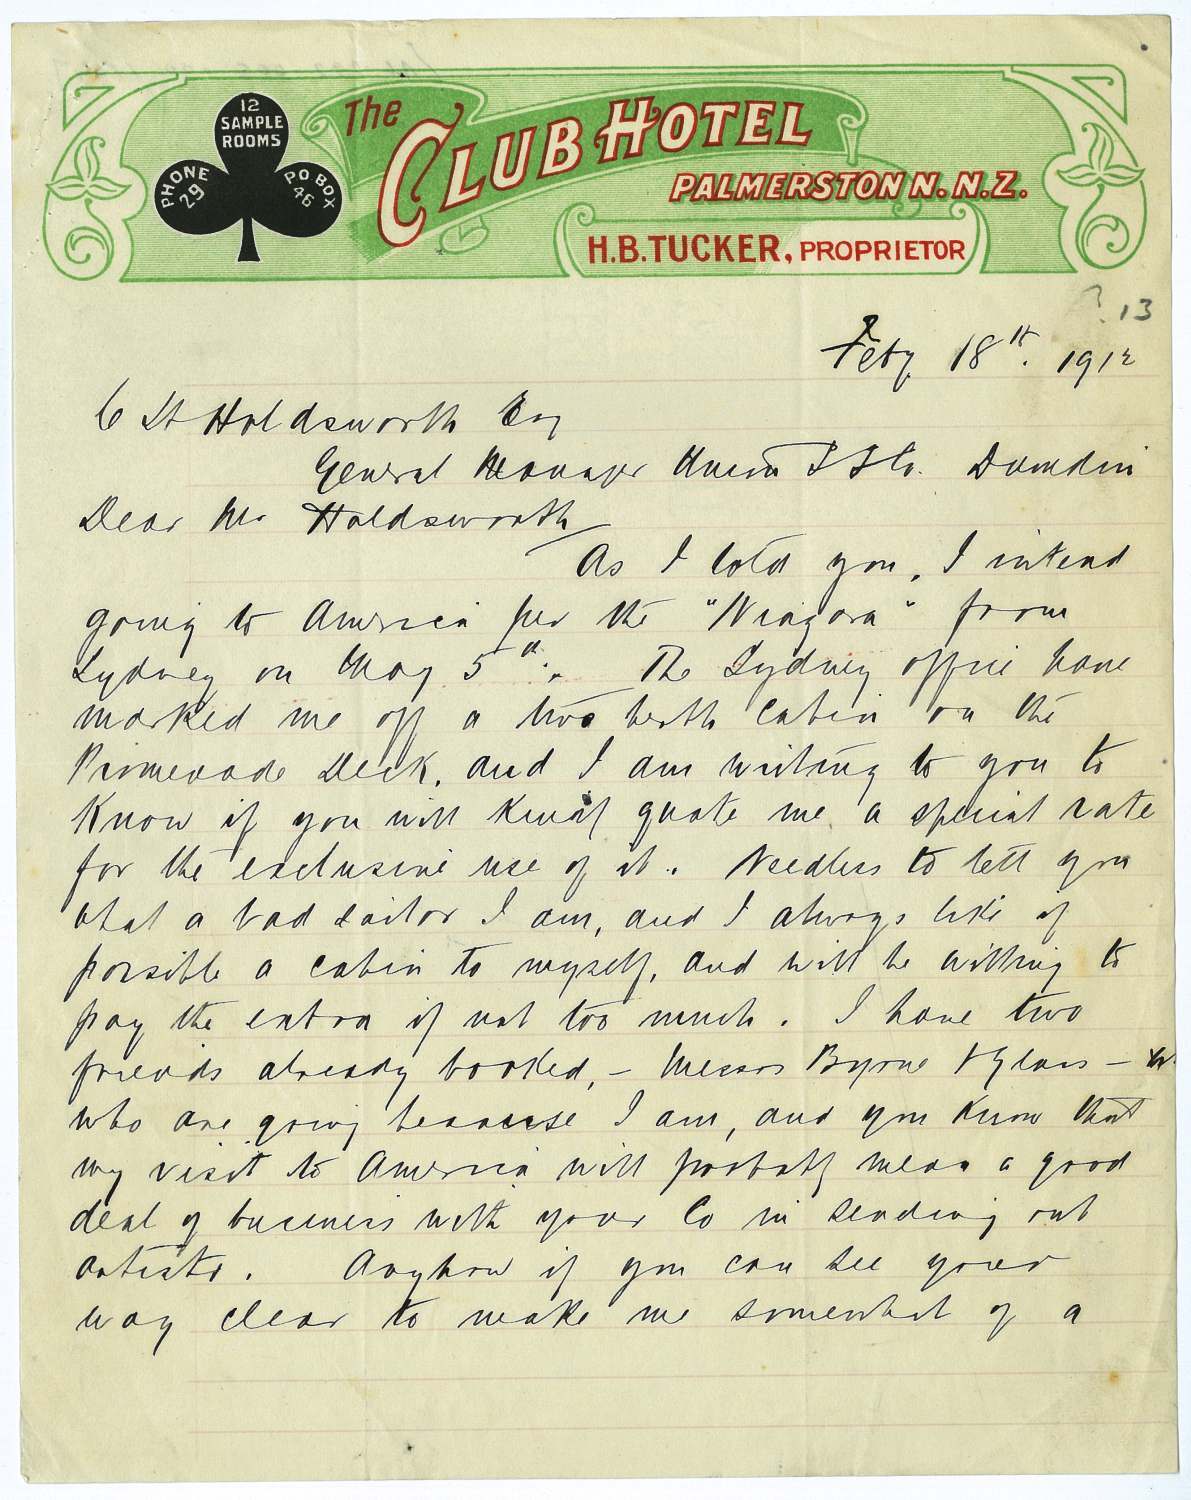 12
SAMPLE
ROOMS
PHONE
29
P.O BOX
46
The
CLUB HOTEL
PALMERSTON N. N.Z.
H.B. TUCKER, PROPRIETOR
? 13
Feby 18th. 1912
C Holdsworth Esq
General Manager Union S S Co. Dunedin
Dear Mr Holdsworth
As I told you, I intend
going to America per the "Niagara" from
Sydney on May 5th. The Sydney office have
marked me off a two berth cabin on the
Promenade Deck, and I am writing to you to
know if you will kindly quote me a special rate
for the exclusive use of it. Needless to tell you
what a bad sailor I am, and I always like if
possible a cabin to myself, and will be willing to
pay the extra if not too much. I have two
friends already booked, - Messrs Byrne & -
who are going because I am, and you know that
my visit to America will probably mean a good
deal of business with your Co in sending out
artists. Anyhow if you can see your
way clear to make me somewhat of a